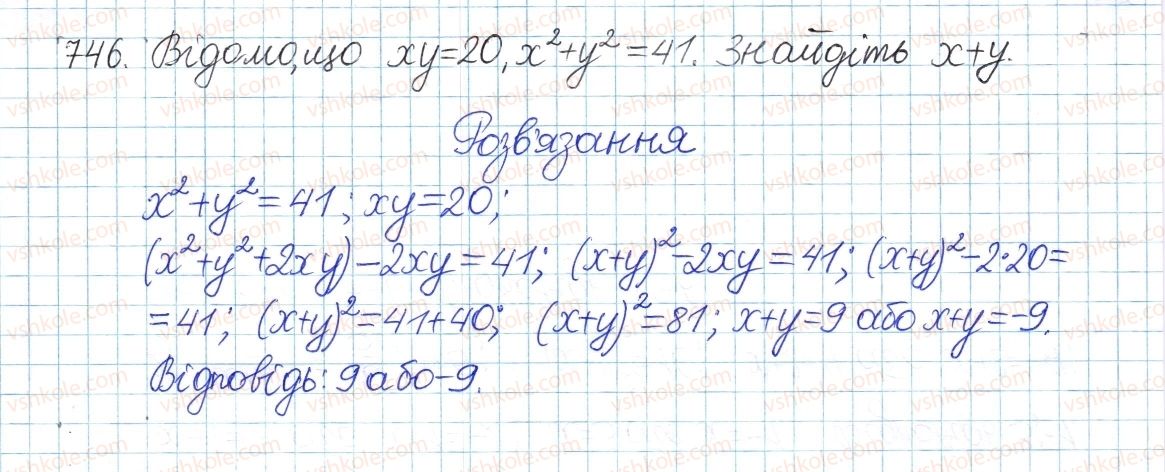 746. Відомо, що xy=20, x²+y²=41. Знайдіть x+y.
Розв'язання
x²+y²=41; xy=20;
(x²+y²+2xy)-2xy=41; (x+y)²-2xy=41; (x+y)²-2·20=
=41; (x+y)²=41+40; (x+y)²=81; x+y=9 або x+y=-9.
Відповідь: 9 або -9.